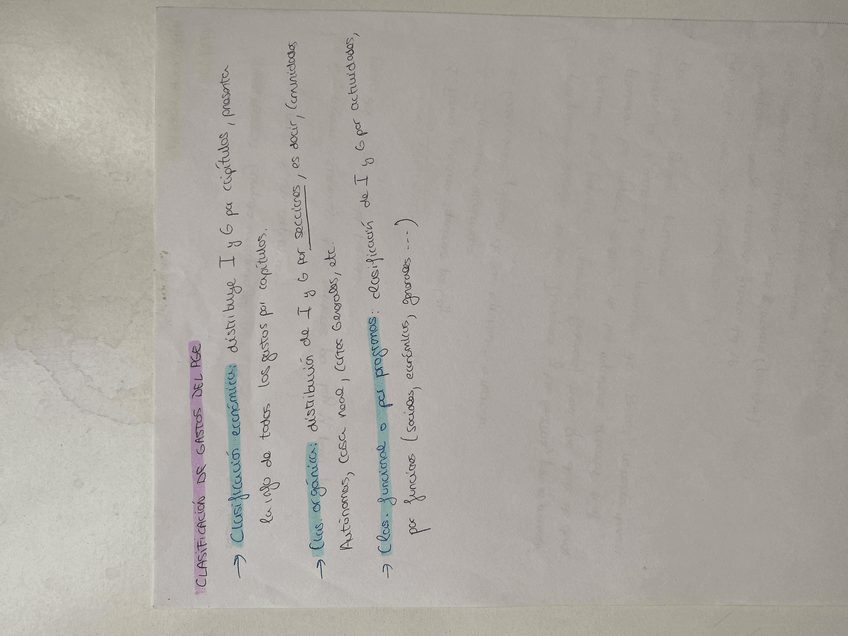 CLASIFICACIÓN DE GASTOS DEL PGE
→ Clasificación económica: distribuye I y G por capítulos, presenta
la info de todos los gastos por capítulos.
→ Clas. orgánica: distribución de I y G por secciones, es decir, Comunidades
Autónomas, Casa Real, Cortes Generales, etc.
→ Clas. funcional o por programas: clasificación de I y G por actividades,
por funciones (sociales, económicas, generales ...)